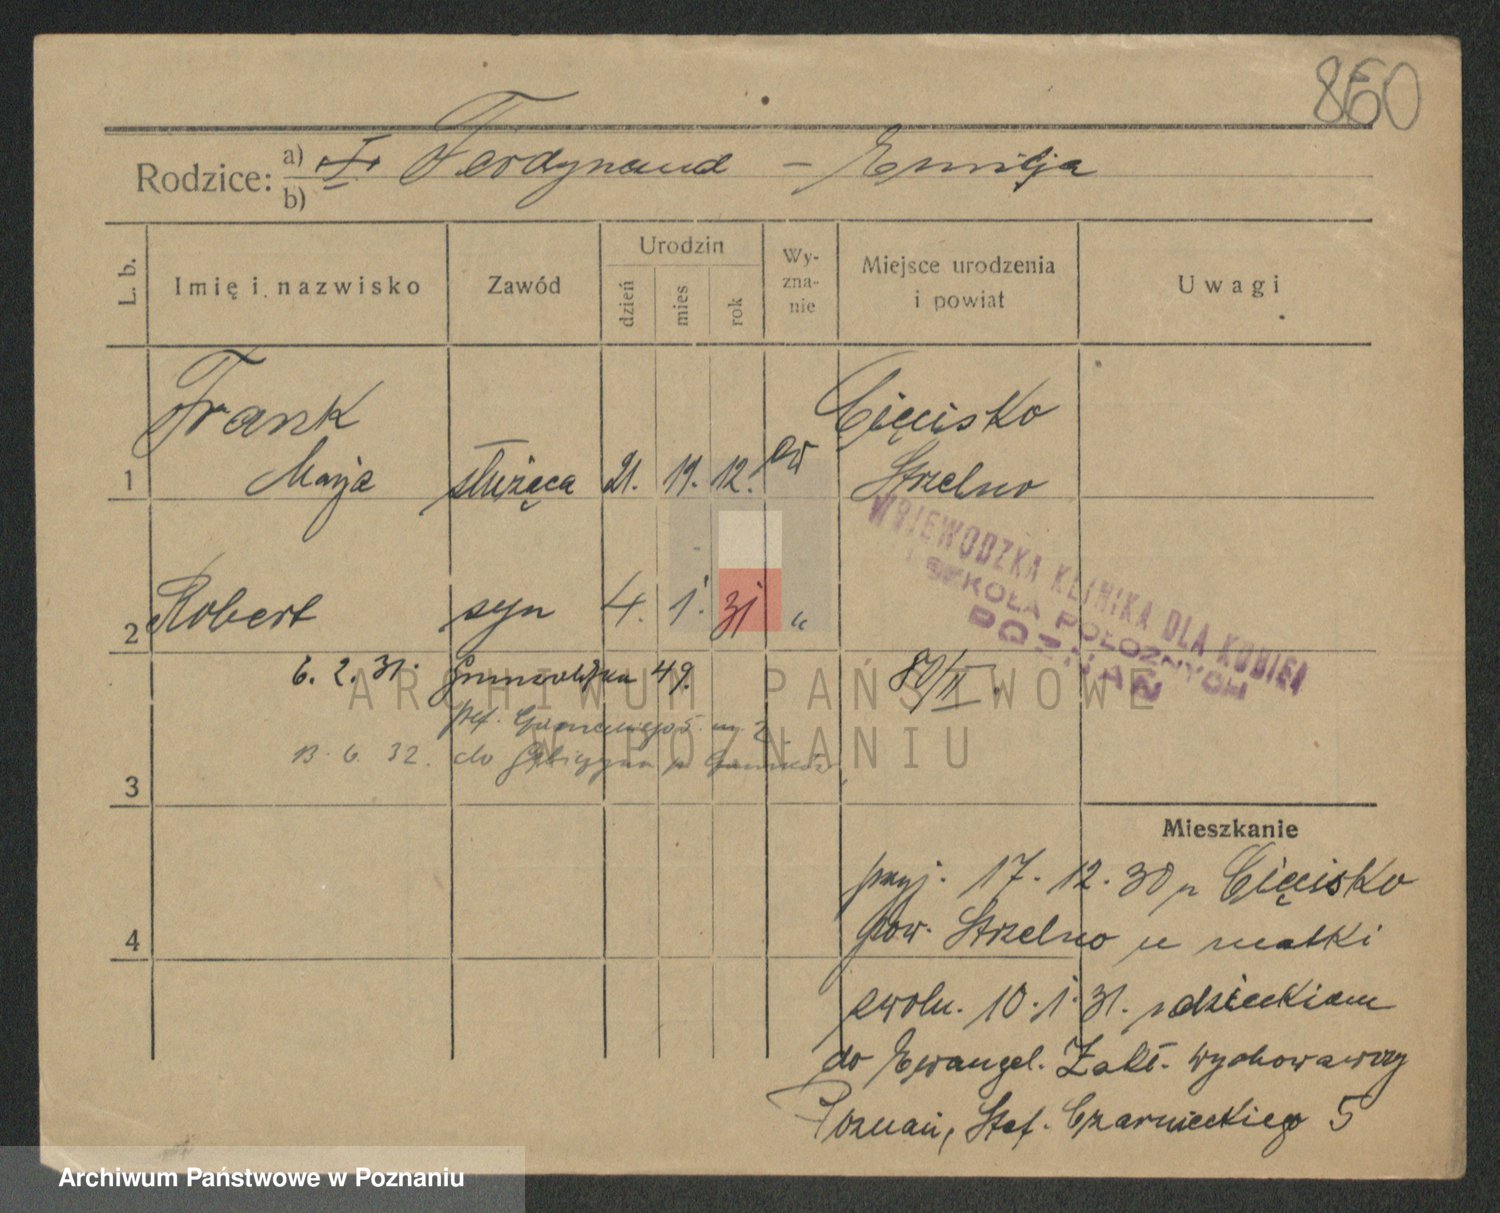 860
Rodzice: a) I Ferdynand - Emilja
b)
L. b.
Imię i nazwisko
Zawód
Urodzin
dzień
mies
rok
Wy-
zna-
nie
Miejsce urodzenia
i powiat
Uwagi
Frank
Cięcisko
1 Marja służąca 21. 19. 12. ew Strzelno
WOJEWÓDZKA KLINIKA DLA KOBIET
I SZKOŁA POŁOŻNYCH
POZNAŃ
2 Robert syn 4. 1. 31 "
6. 2. 31. 49. 80/II.
ARCHIWUM PAŃSTWOWE
W POZNANIU
13. 6. 32. do
3
Mieszkanie
przyj. 17. 12. 30 Cięcisko
4 pow. Strzelno u matki
zwoln. 10. 1. 31. z dzieckiem
do Ewangel. Zakł. wychowawczy
Poznań, Stef. Czarnieckiego 5
Archiwum Państwowe w Poznaniu